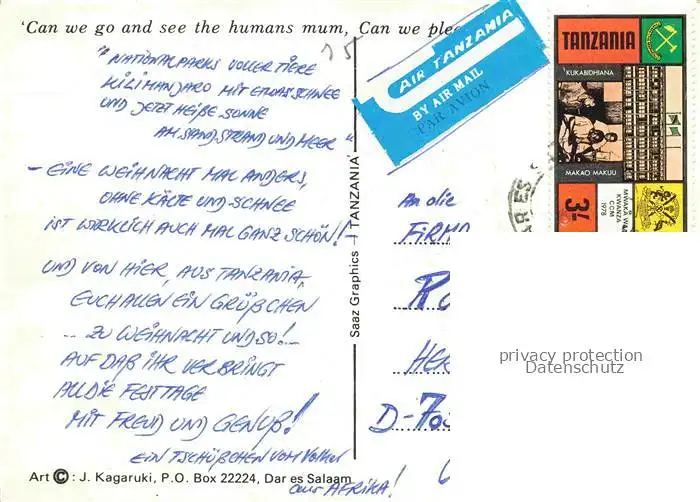 'Can we go and see the humans mum, Can we ple
15
"NATIONALPARKS VOLLER TIERE
KILIMANJARO MIT ETWAS SCHNEE
UND JETZT HEIßE SONNE
AM SANDSTRAND UND MEER"
- EINE WEIHNACHT MAL ANDERS,
OHNE KÄLTE UND SCHNEE
IST WIRKLICH AUCH MAL GANZ SCHÖN! -
UND VON HIER, AUS TANZANIA,
EUCH ALLEN EIN GRÜßCHEN
... ZU WEIHNACHT UND SO! -
AUF DAß IHR VERBRINGT
ALL DIE FESTTAGE
MIT FREUD UND GENUß!
EIN TSCHÜßCHEN VOM
aus AFRIKA!
Art ©: J. Kagaruki, P.O. Box 22224, Dar es Salaam
Saaz Graphics – TANZANIA
AIR TANZANIA
BY AIR MAIL
PAR AVION
An die
FIRMA
D-70
TANZANIA
KUKABIDHIANA
MAKAO MAKUU
3/-
MWAKA WA
KWANZA
CCM
1978
AR ES S
privacy protection
Datenschutz